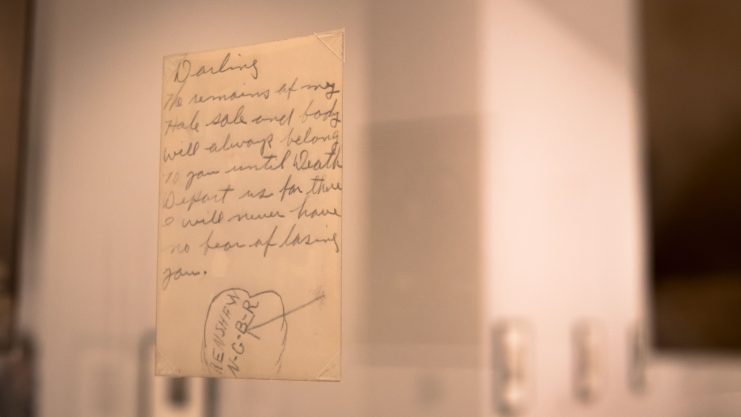 Darling
The remains of my
Hale sole and body
will always belong
to you until Death
Depart us for there
I will never have
no fear of losing
you.
RENSHAW
N-G-B-R